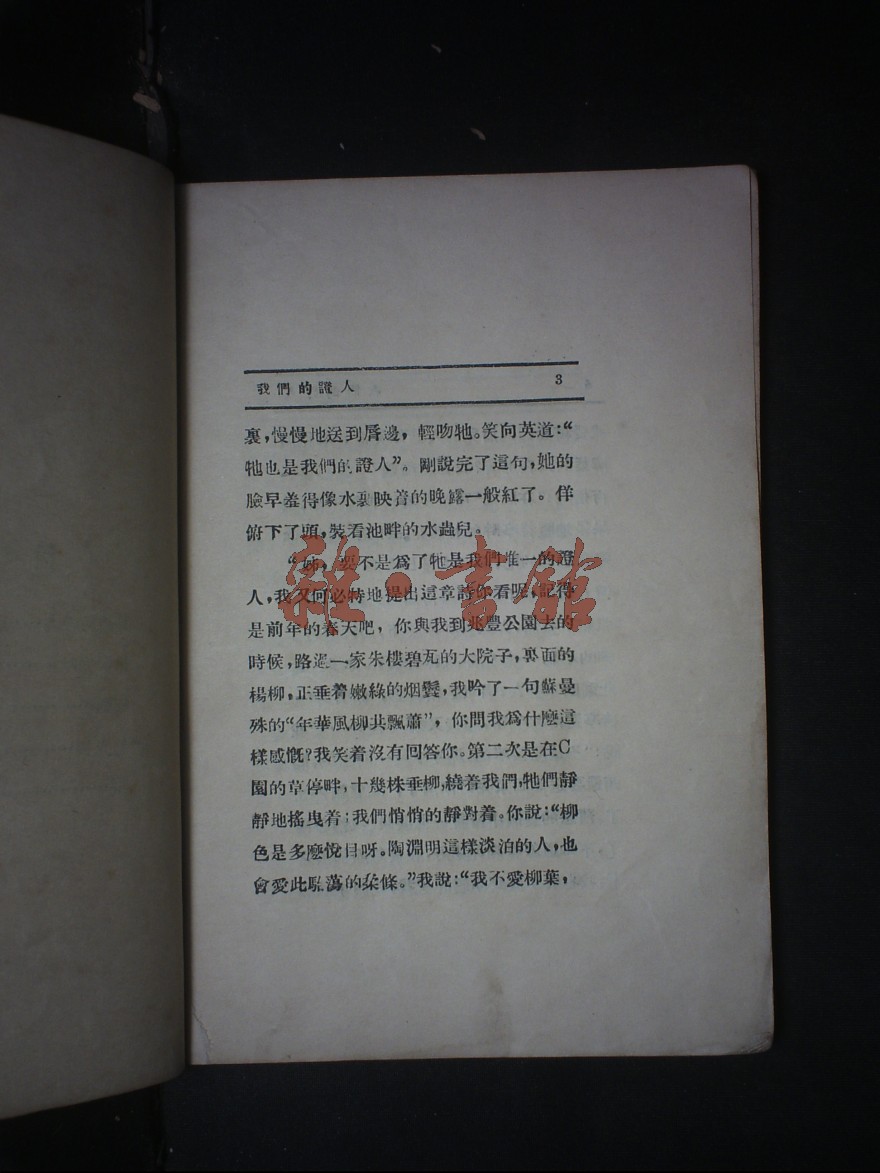 我們的證人 3
裏,慢慢地送到脣邊,輕吻牠。笑向英道:“
牠也是我們的證人”。剛說完了這句,她的
臉早羞得像水裏映着的晚霞一般紅了。佯
俯下了頭,裝看池畔的水蟲兒。
“姊,要不是爲了牠是我們唯一的證
人,我又何必特地提出這章詩你看呢,記得
是前年的春天吧,你與我到兆豐公園去的
時候,路過一家朱樓碧瓦的大院子,裏面的
楊柳,正垂着嫩綠的烟鬟,我吟了一句蘇曼
殊的“年華風柳共飄蕭”,你問我爲什麽這
樣感慨?我笑着沒有回答你。第二次是在C
園的草停畔,十幾株垂柳,繞着我們,牠們靜
靜地搖曳着;我們悄悄的靜對着。你說:“柳
色是多麽悅目呀。陶淵明這樣淡泊的人,也
會愛此駘蕩的柔條。”我說:“我不愛柳葉,
雜·書館